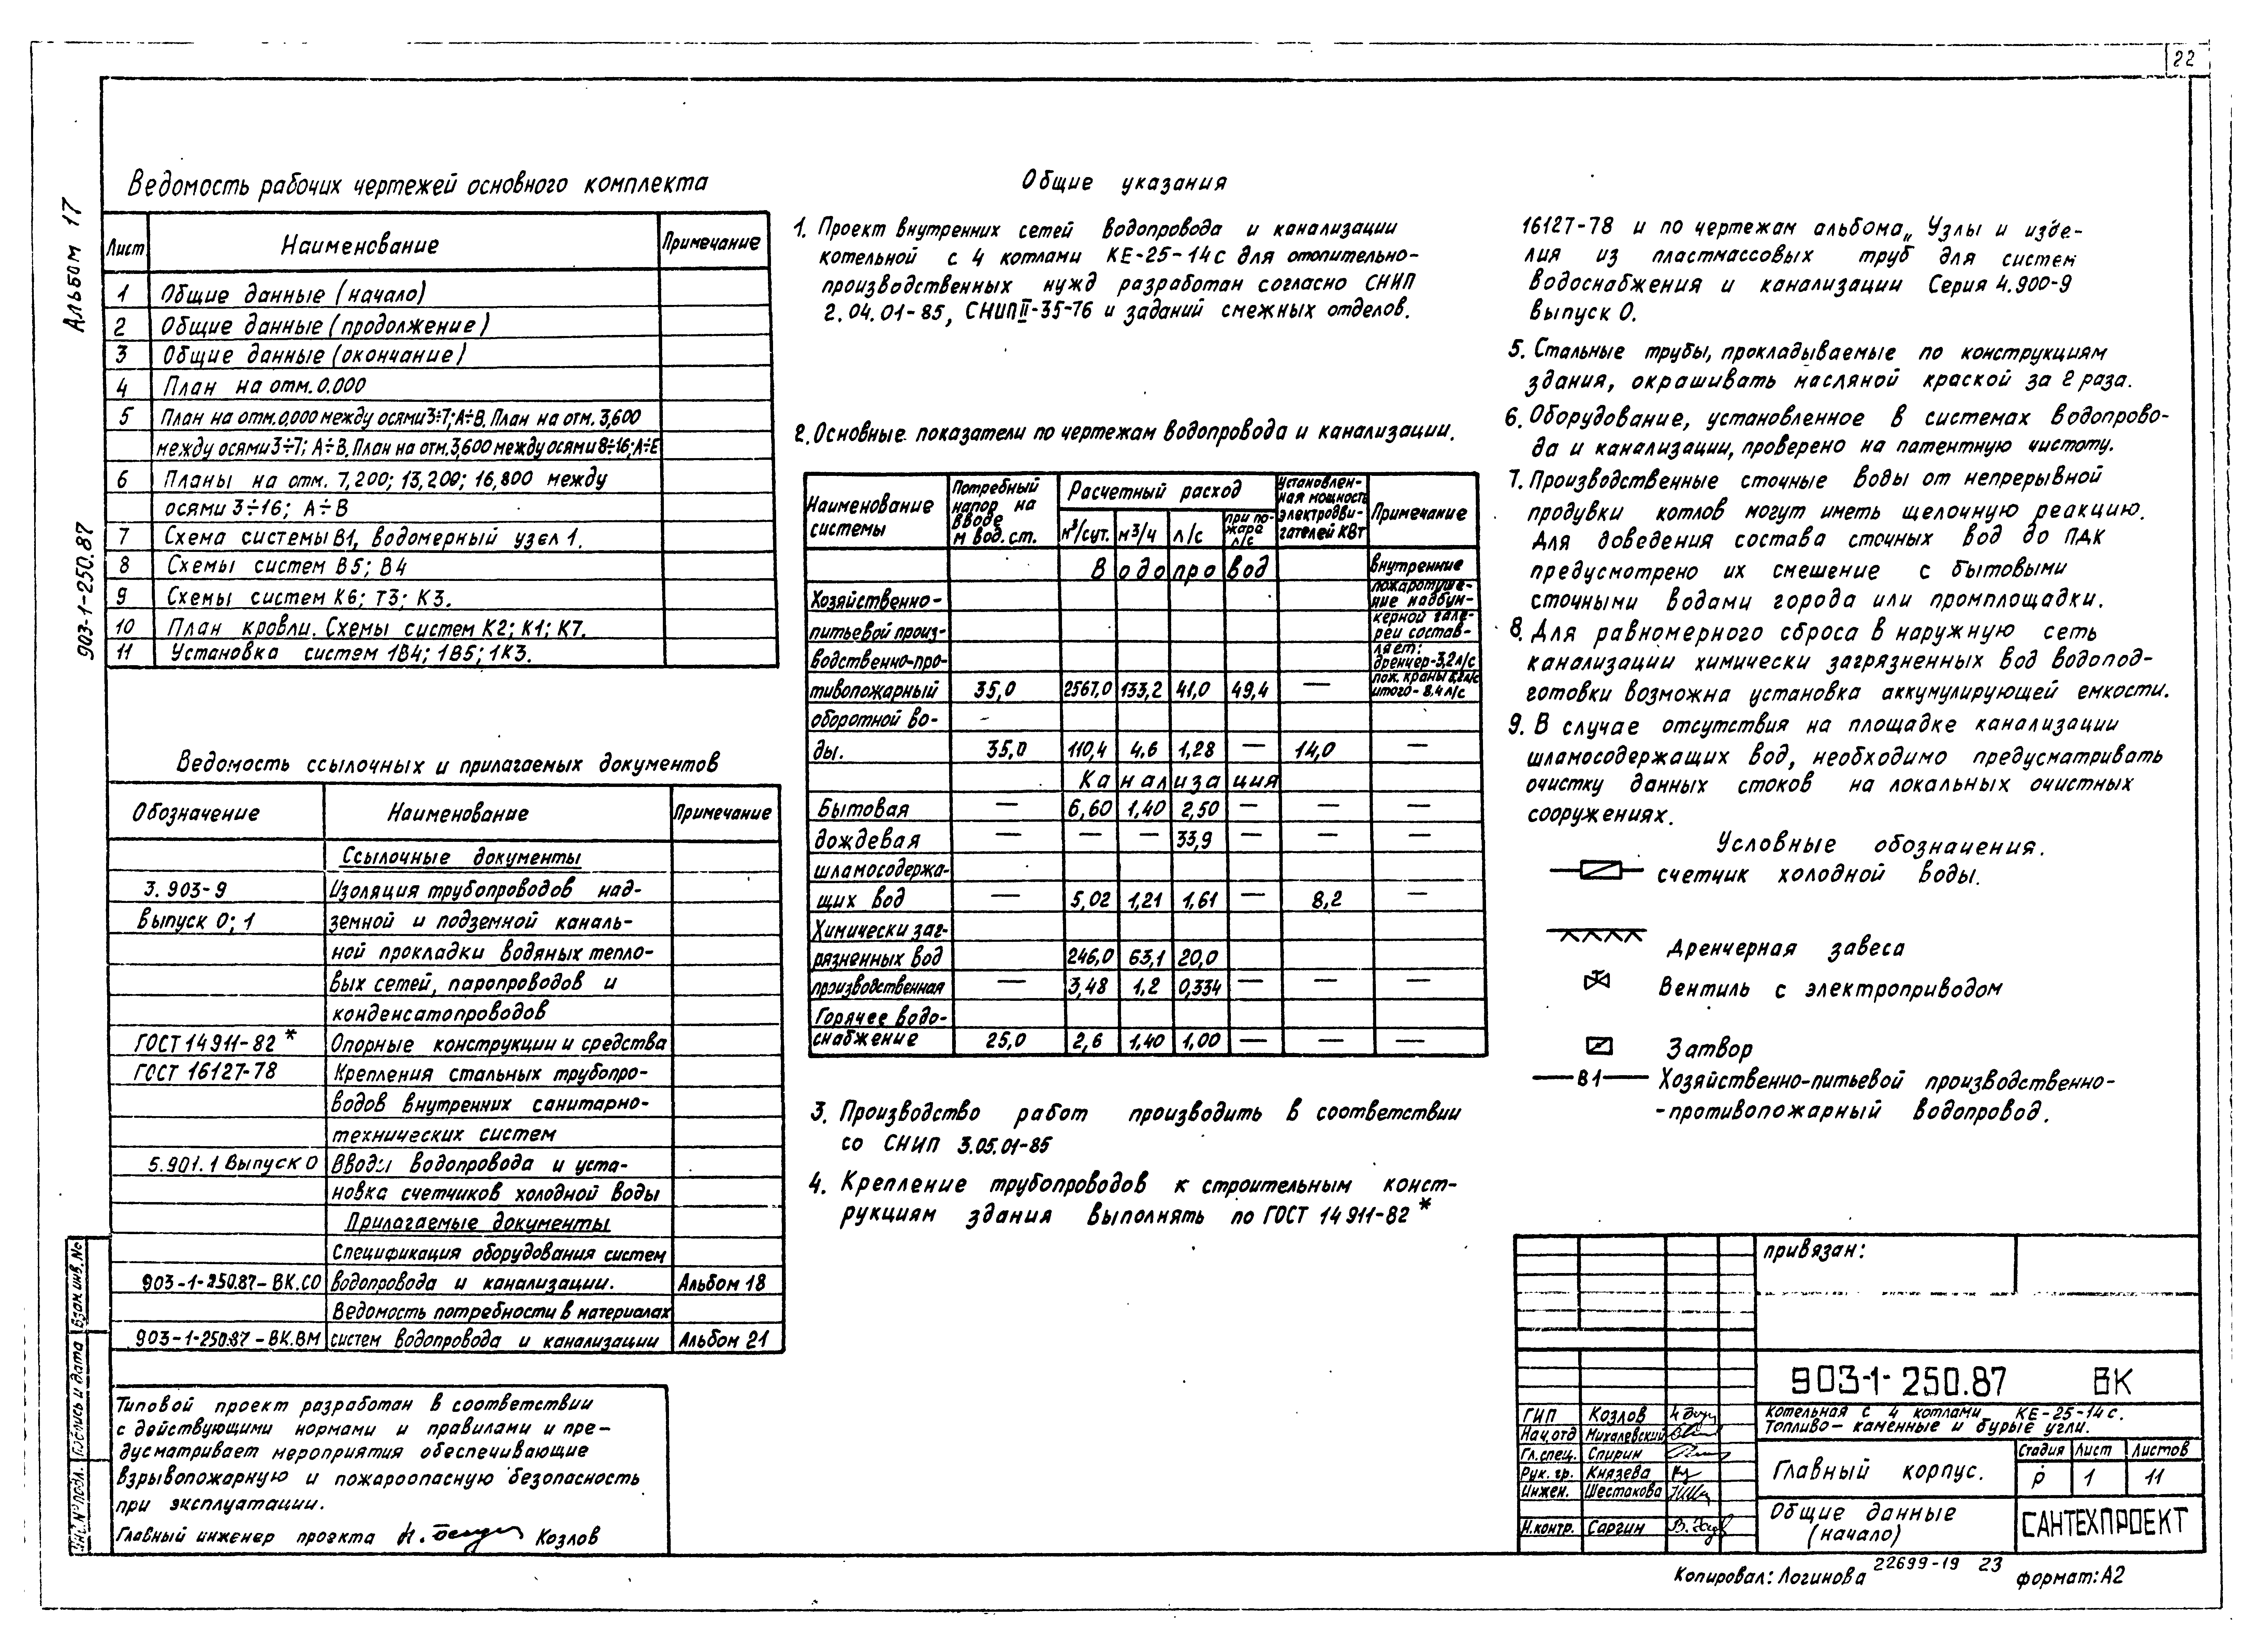 22
Альбом 17
903-1-250.87
Ведомость рабочих чертежей основного комплекта
Лист Наименование Примечание
1 Общие данные (начало)
2 Общие данные (продолжение)
3 Общие данные (окончание)
4 План на отм. 0.000
5 План на отм. 0,000 между осями 3÷7; А÷В. План на отм. 3,600
между осями 3÷7; А÷В. План на отм. 3,600 между осями 8÷16; А÷Е
6 Планы на отм. 7,200; 13,200; 16,800 между
осями 3÷16; А÷В
7 Схема системы В1, Водомерный узел 1.
8 Схемы систем В5; В4
9 Схемы систем К6; Т3; К3.
10 План кровли. Схемы систем К2; К1; К7.
11 Установка систем 1В4; 1В5; 1К3.
Ведомость ссылочных и прилагаемых документов
Обозначение Наименование Примечание
Ссылочные документы
3.903-9 Изоляция трубопроводов над-
Выпуск 0; 1 земной и подземной каналь-
ной прокладки водяных тепло-
вых сетей, паропроводов и
конденсатопроводов
ГОСТ 14911-82* Опорные конструкции и средства
ГОСТ 16127-78 Крепления стальных трубопро-
водов внутренних санитарно-
технических систем
5.901.1 Выпуск 0 Вводы водопровода и уста-
новка счетчиков холодной воды
Прилагаемые документы
Спецификация оборудования систем
903-1-250.87-ВК.СО водопровода и канализации. Альбом 18
Ведомость потребности в материалах
903-1-250.87-ВК.ВМ систем водопровода и канализации Альбом 21
Типовой проект разработан в соответствии
с действующими нормами и правилами и пре-
дусматривает мероприятия обеспечивающие
взрывопожарную и пожароопасную безопасность
при эксплуатации.
Главный инженер проекта Козлов
Взам.инв.№
Подпись и дата
Инв.№ подл.
Общие указания
1. Проект внутренних сетей водопровода и канализации
котельной с 4 котлами КЕ-25-14с для отопительно-
производственных нужд разработан согласно СНИП
2.04.01-85, СНИП II-35-76 и заданий смежных отделов.
2. Основные показатели по чертежам водопровода и канализации.
Наименование системы Потребный напор на вводе м вод. ст. Расчетный расход м³/сут. м³/ч л/с при пожаре л/с Установлен-ная мощность электродви-гателей КВт Примечание
Водопровод внутренние
пожаротуше-
Хозяйственно- ние надбун-
керной гале-
питьевой произ- реи состав-
ляет:
водственно-про- дренчер-3,2л/с
пож. краны 5,2л/с
тивопожарный 35,0 2567,0 133,2 41,0 49,4 — итого-8,4л/с
оборотной во-
ды. 35,0 110,4 4.6 1,28 — 14,0 —
Канализация
Бытовая — 6,60 1,40 2,50 — — —
дождевая — — — 33,9 — — —
шламосодержа-
щих вод — 5,02 1,21 1,61 — 8,2 —
Химически заг-
рязненных вод 246,0 63,1 20,0
производственная — 3,48 1.2 0,334 — — —
Горячее водо-
снабжение 25,0 2,6 1,40 1,00 — — —
3. Производство работ производить в соответствии
со СНИП 3.05.01-85
4. Крепление трубопроводов к строительным конст-
рукциям здания выполнять по ГОСТ 14911-82*
16127-78 и по чертежам альбома „Узлы и изде-
лия из пластмассовых труб для систем
Водоснабжения и канализации Серия 4.900-9
выпуск 0.
5. Стальные трубы, прокладываемые по конструкциям
здания, окрашивать масляной краской за 2 раза.
6. Оборудование, установленное в системах водопрово-
да и канализации, проверено на патентную чистоту.
7. Производственные сточные воды от непрерывной
продувки котлов могут иметь щелочную реакцию.
Для доведения состава сточных вод до ПДК
предусмотрено их смешение с бытовыми
сточными водами города или промплощадки.
8. Для равномерного сброса в наружную сеть
канализации химически загрязненных вод водопод-
готовки возможна установка аккумулирующей емкости.
9. В случае отсутствия на площадке канализации
шламосодержащих вод, необходимо предусматривать
очистку данных стоков на локальных очистных
сооружениях.
Условные обозначения.
счетчик холодной воды.
Дренчерная завеса
Вентиль с электроприводом
Затвор
В1 Хозяйственно-питьевой производственно-
-противопожарный водопровод.
привязан:
903-1-250.87 ВК
Котельная с 4 котлами КЕ-25-14с.
Топливо- каменные и бурые угли.
ГИП Козлов
Нач.отд Михалевский
Гл.спец. Спирин
Рук. гр. Князева
Инжен. Шестакова
Н.контр. Саргин
Главный корпус.
Стадия Лист Листов
Р 1 11
Общие данные
(начало)
САНТЕХПРОЕКТ
Копировал: Логинова 22699-19 23 формат: А2